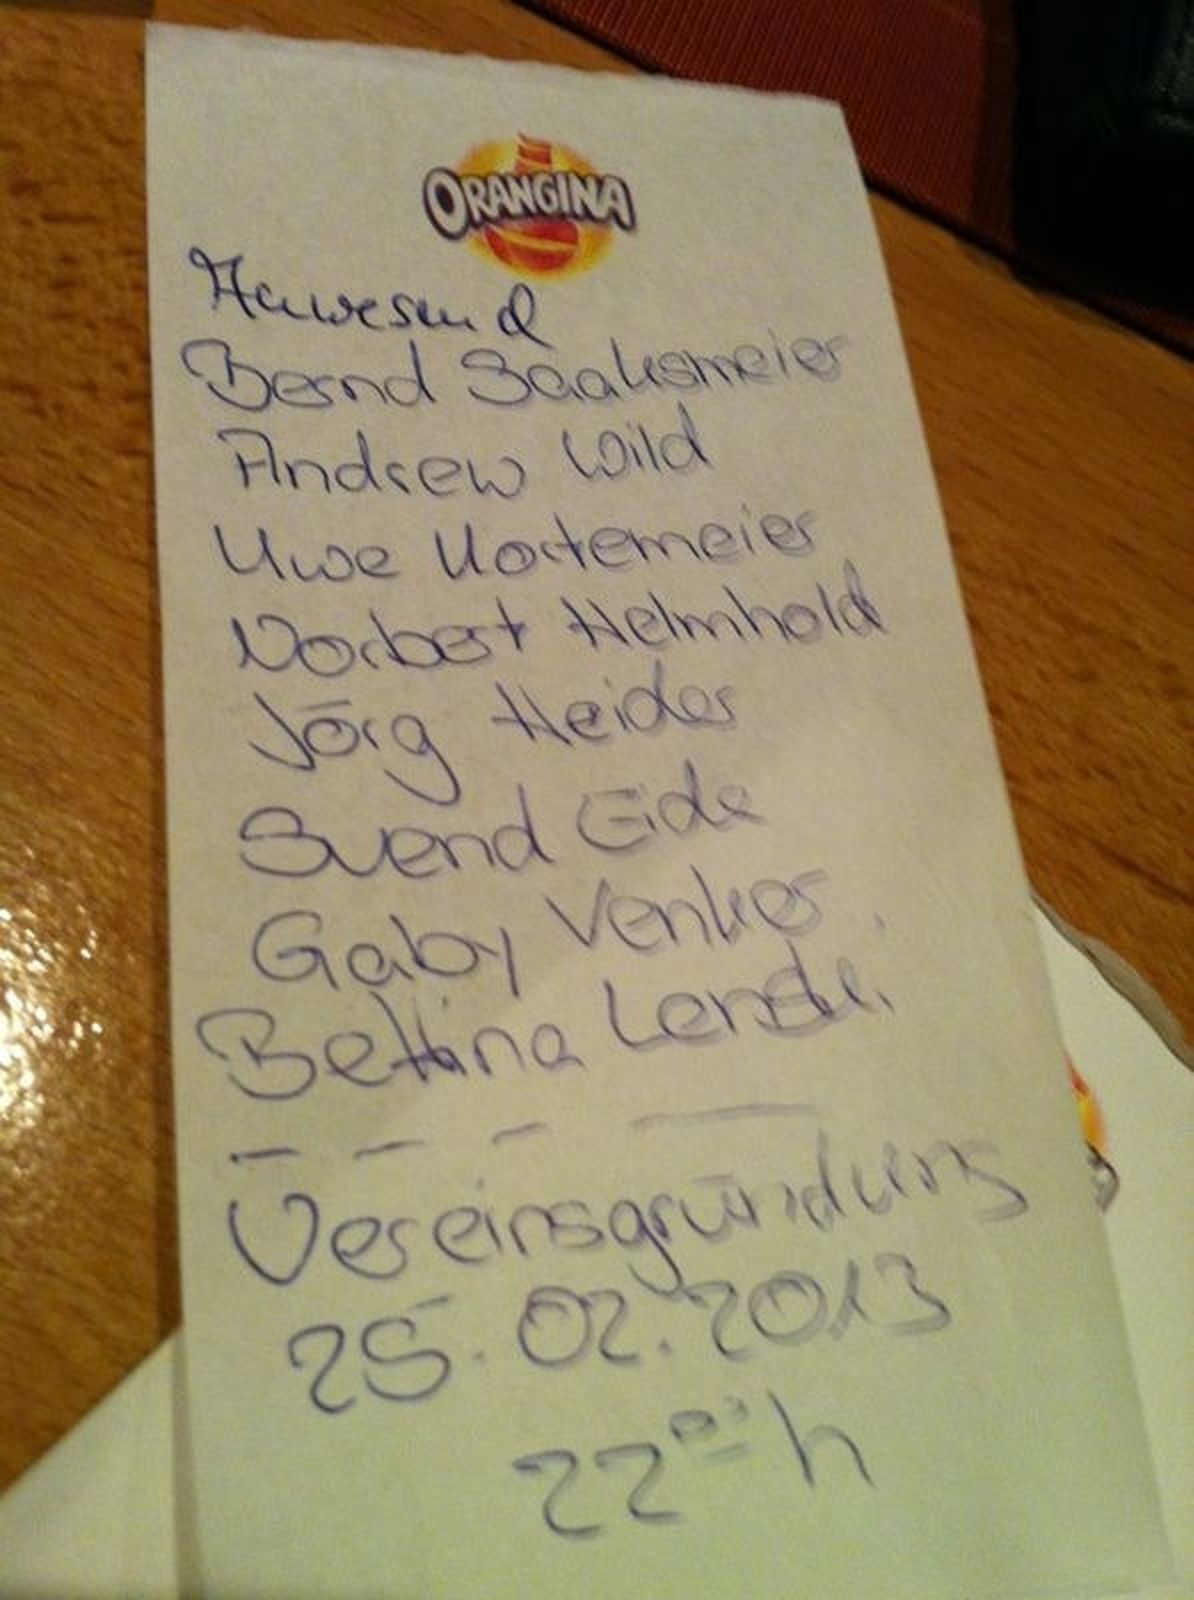 ORANGINA
Anwesend
Bernd Saaksmeier
Andrew Wild
Uwe Kortemeier
Norbert Helmhold
Jörg Heider
Svend Eide
Gaby Venker
Bettina
Vereinsgründung
25.02.2013
22 h